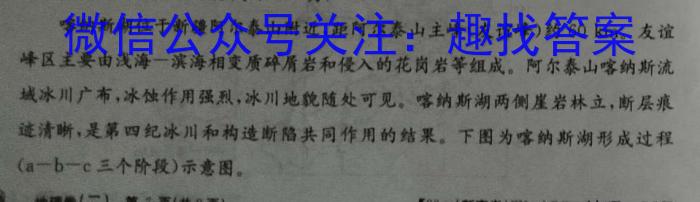 微信公众号关注：趣找答案
喀纳斯湖位于新疆阿尔泰山附近，距阿尔泰山主峰 km。友谊
峰区主要由浅海—滨海相变质碎屑岩和侵入的花岗岩等组成。阿尔泰山喀纳斯流
域冰川广布，冰蚀作用强烈，冰川地貌随处可见。喀纳斯湖两侧崖岩林立，断层痕
迹清晰，是第四纪冰川和构造断陷共同作用的结果。下图为喀纳斯湖形成过程
(a—b—c三个阶段)示意图。